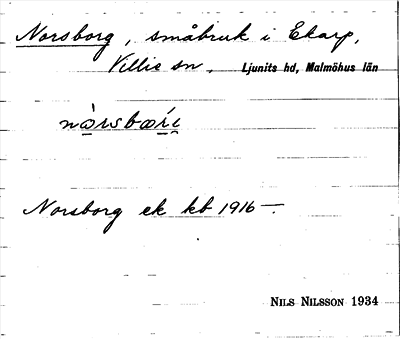 Norsborg, småbruk i Ekarp,
Villie sn. Ljunits hd, Malmöhus län
nòrsbœŕi̯
Norsborg ek kb 1916 —.
NILS NILSSON 1934